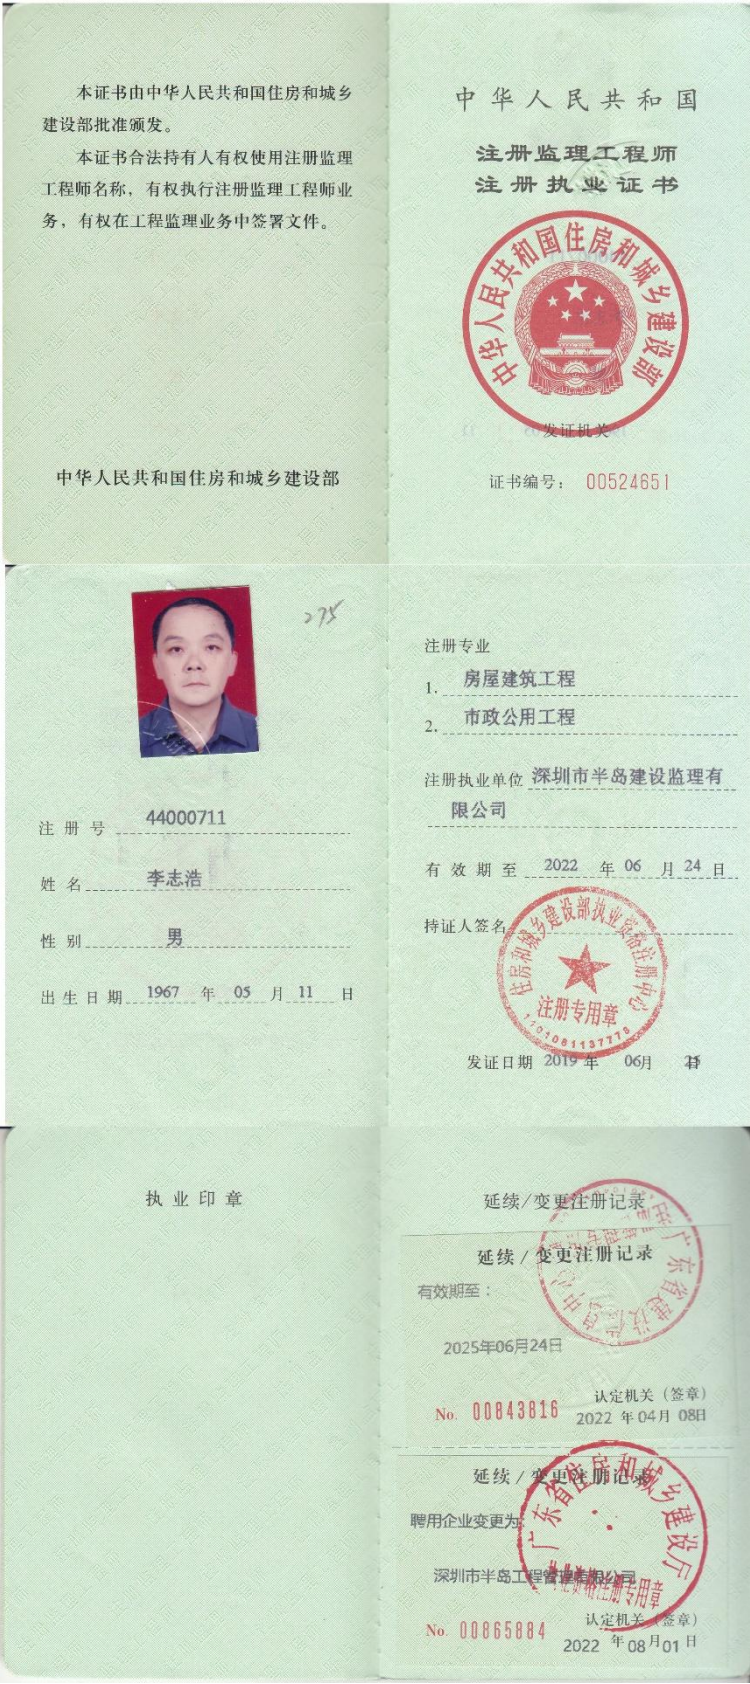 本证书由中华人民共和国住房和城乡
建设部批准颁发。
本证书合法持有人有权使用注册监理
工程师名称，有权执行注册监理工程师业
务，有权在工程监理业务中签署文件。
中华人民共和国住房和城乡建设部
中华人民共和国
注册监理工程师
注册执业证书
中华人民共和国住房和城乡建设部
发证机关
证书编号： 00524651
275
注册号 44000711
姓名 李志浩
性别 男
出生日期 1967 年 05 月 11 日
注册专业
1. 房屋建筑工程
2. 市政公用工程
注册执业单位 深圳市半岛建设监理有
限公司
有效期至 2022 年 06 月 24 日
持证人签名
住房和城乡建设部执业资格注册中心
注册专用章
1101081137778
发证日期 2019 年 06月 日
执业印章
延续/变更注册记录
延续/变更注册记录
有效期至：
2025年06月24日
No. 00843816
认定机关（签章）
2022 年 04月 08日
延续/变更注册记录
广东省住房和城乡建设厅
聘用企业变更为：
深圳市半岛工程管理有限公司
注册专用章
No. 00865884
认定机关（签章）
2022 年 08月 01日